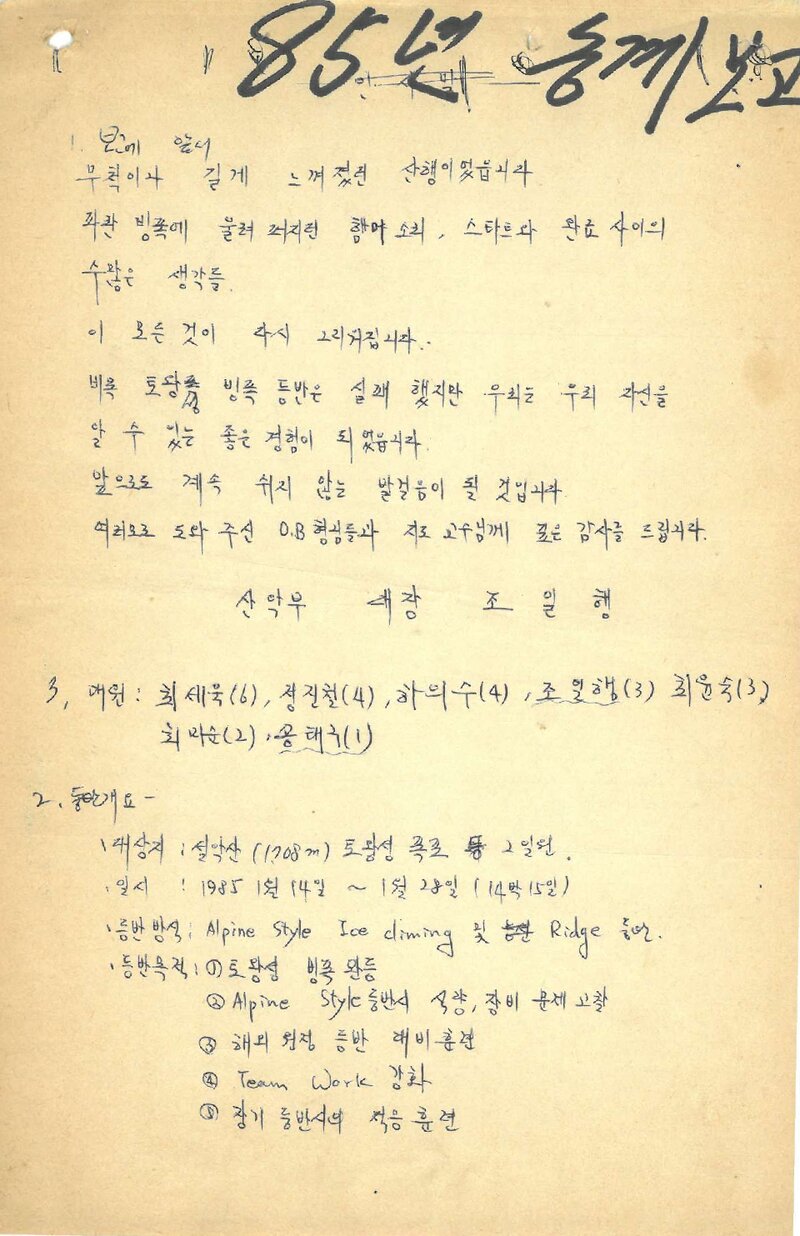 85년 동계 보고
인사말
1. 보고에 앞서
무척이나 길게 느껴졌던 산행이었읍니다
좌란 빙폭에 울려 퍼지던 함마 소리, 스타트와 완료 사이의
수많은 생각들.
이 모든 것이 다시 그리워집니다..
비록 토왕성 빙폭 등반은 실패 했지만 우리는 우리 자신을
알 수 있는 좋은 경험이 되었읍니다.
앞으로도 계속 쉬지 않는 발걸음이 될 것입니다
여러모로 도와 주신 O.B형님들과 지도 교수님께 깊은 감사를 드립니다.
산악부 대장 조일행
3, 대원 : 최세묵(6), 정진철(4), 하의수(4), 조일행(3) 최윤숙(3),
최미순(2), 공태주(1)
2. 등반개요 -
·대상지 : 설악산 (1,708m) 토왕성 폭포 등 그 일원.
·일시 : 1985 1월 14일 ~ 1월 28일 (14박 15일)
·등반방식 : Alpine Style Ice climing 및 Ridge 등반.
·등반목적 : ① 토왕성 빙폭 완등
② Alpine Style 등반시 식량, 장비 문제 고찰
③ 해외 원정 등반 대비 훈련
④ Team Work 강화
⑤ 장기 등반시의 적응 훈련